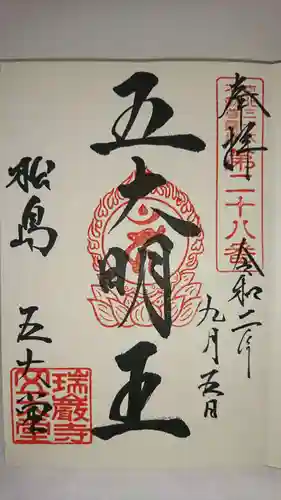 奉拝
令和二年
九月五日
五大明王
松島 五大堂
瑞巌寺
五大堂
第二十八番